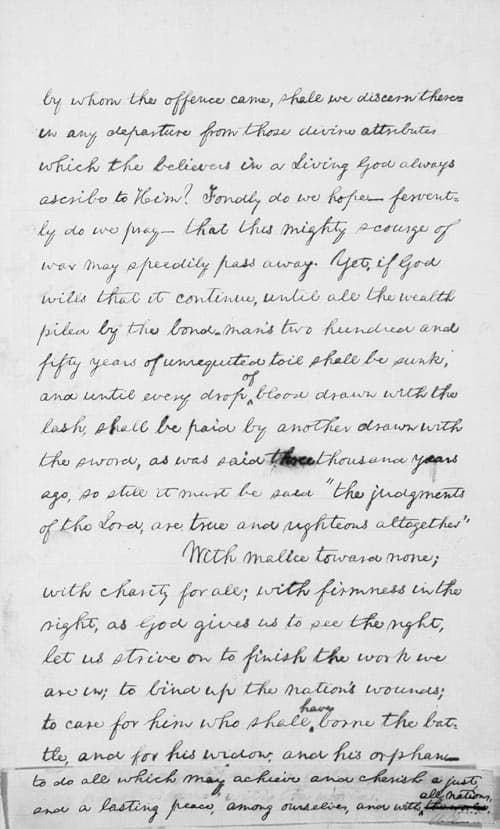 by whom the offence came, shall we discern there=
in any departure from those divine attributes
which the believers in a Living God always
ascribe to Him? Fondly do we hope— fervent=
ly do we pray— that this mighty scourge of
war may speedily pass away. Yet, if God
wills that it continue, until all the wealth
piled by the bond-man's two hundred and
fifty years of unrequited toil shall be sunk,
and until every drop of blood drawn with the
lash, shall be paid by another drawn with
the sword, as was said three thousand years
ago, so still it must be said "the judgments
of the Lord, are true and righteous altogether"
With malice toward none;
with charity for all; with firmness in the
right, as God gives us to see the right,
let us strive on to finish the work we
are in; to bind up the nation's wounds;
to care for him who shall have borne the bat-
tle, and for his widow, and his orphan—
to do all which may achieve and cherish a just
and a lasting peace, among ourselves, and with all nations. the world.